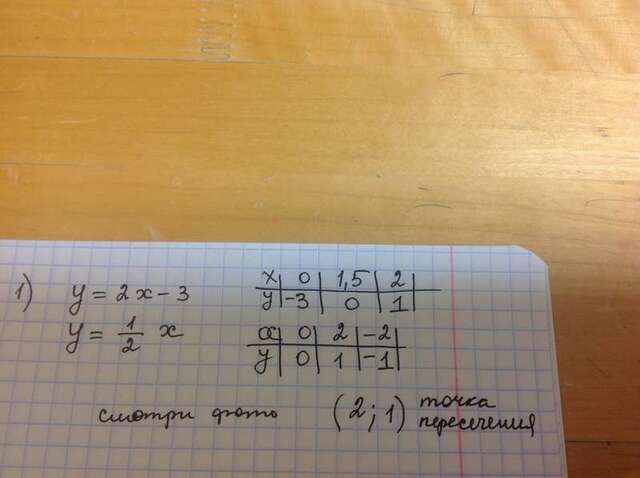 1) y = 2x - 3
x | 0 | 1,5 | 2 |
y | -3 | 0 | 1 |
y = 1/2 x
x | 0 | 2 | -2 |
y | 0 | 1 | -1 |
смотри фото (2; 1) точка
пересечения